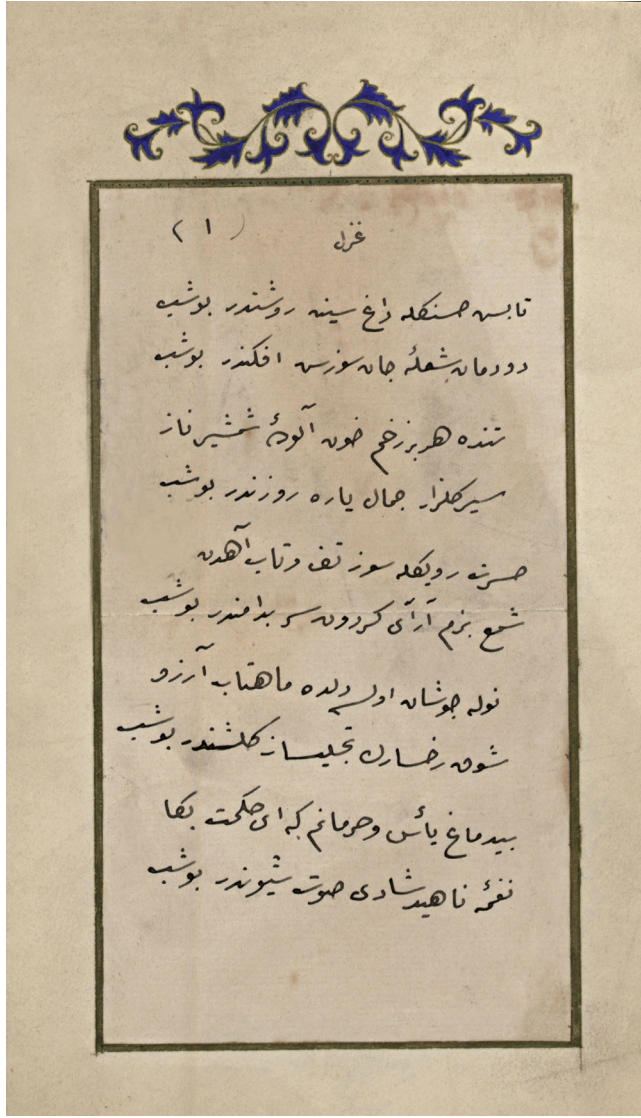 غزل (۱)
تابس حسنكله داغ سينه روشندر بوشب
دودمان شعلهٔ جان سوزس افكندر بوشب
تنده هر بر زخم خون آلودهٔ شمشير ناز
سير كلزار جمال ياره روزندر بوشب
حسرت رويكله سوز تف وتاب آهدن
شمع بزم آرآى كردون سر بدامندر بوشب
نوله جوشان اولسه دلده ماهتاب آرزو
شوق رخسارك تجليساز كلشندر بوشب
بيدماغ يأس وحرمانم كه اى حكمت بكا
نغمهٔ ناهيد شادى صوت شيوندر بوشب